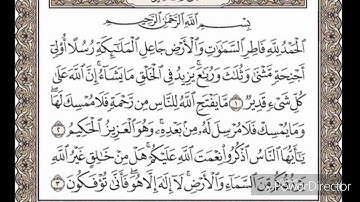 بِسْمِ اللَّهِ الرَّحْمَٰنِ الرَّحِيمِ
الْحَمْدُ لِلَّهِ فَاطِرِ السَّمَٰوَٰتِ وَالْأَرْضِ جَاعِلِ الْمَلَٰٓئِكَةِ رُسُلًا أُو۟لِىٓ
أَجْنِحَةٍ مَّثْنَىٰ وَثُلَٰثَ وَرُبَٰعَ ۚ يَزِيدُ فِى الْخَلْقِ مَا يَشَآءُ ۚ إِنَّ اللَّهَ عَلَىٰ
كُلِّ شَىْءٍ قَدِيرٌ ١ مَّا يَفْتَحِ اللَّهُ لِلنَّاسِ مِن رَّحْمَةٍ فَلَا مُمْسِكَ لَهَا ۖ
وَمَا يُمْسِكْ فَلَا مُرْسِلَ لَهُۥ مِنۢ بَعْدِهِۦ ۚ وَهُوَ الْعَزِيزُ الْحَكِيمُ ٢
يَٰٓأَيُّهَا النَّاسُ اذْكُرُوا۟ نِعْمَتَ اللَّهِ عَلَيْكُمْ ۚ هَلْ مِنْ خَٰلِقٍ غَيْرُ اللَّهِ
يَرْزُقُكُم مِّنَ السَّمَآءِ وَالْأَرْضِ ۚ لَآ إِلَٰهَ إِلَّا هُوَ ۖ فَأَنَّىٰ تُؤْفَكُونَ ٣
PowerDirector